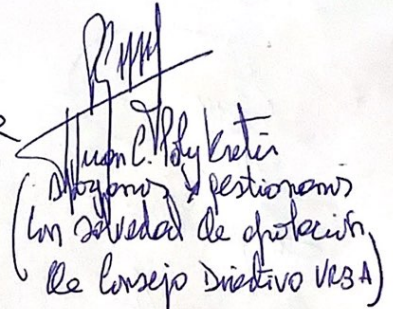 Juan C. Polykretis
(Abogamos y gestionamos
con salvedad de aprobación
de Consejo Directivo URBA)